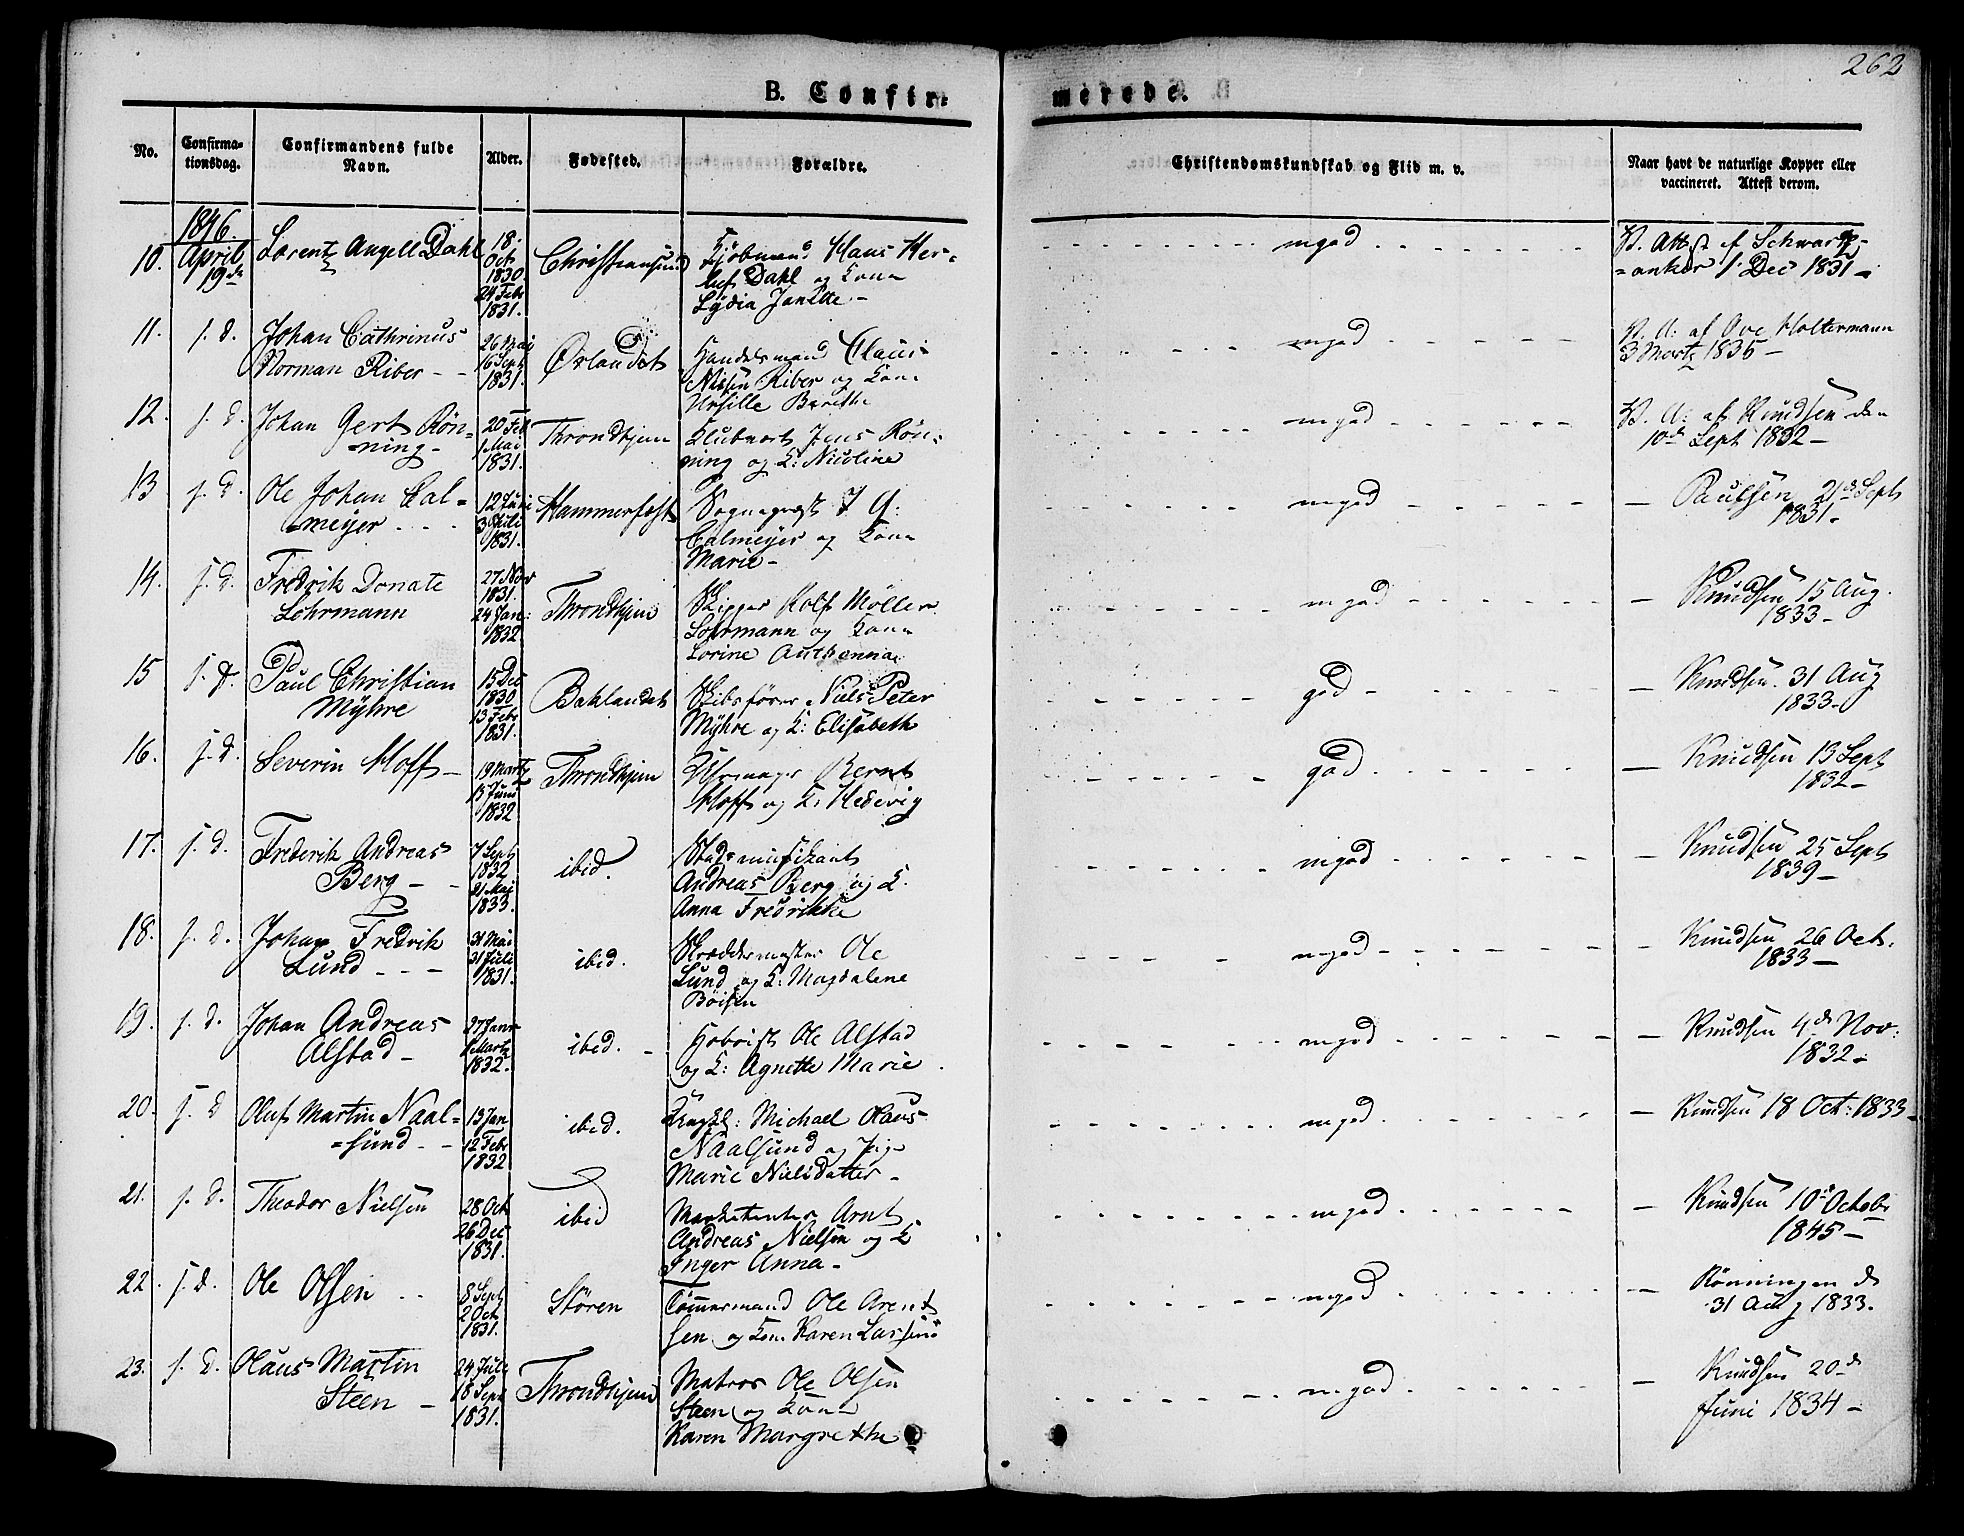 262
B. Confir-
merede.
No.
Confirma-
tionsdag.
Confirmandens fulde
Navn.
Alder.
Fødested.
Forældre.
Christendomskundskab og Flid m. v.
Naar havt de naturlige Kopper eller
vaccineret. Attest derom.
1846.
10. April 19de Lorentz Angell Dahl 18 Oct 1830 24 Febr 1831. Christiansund Kjöbmand Hans Her-
luf Dahl og Kone
Lydia Janette - mgod V. Attst af Schwartz-
=enker 1. Dec 1831 -
11. s. d. Johan Cathrinus
Norman Riber - - 26 Mai 16 Sept 1831. Ørlandet Handelsmand Claus
Nissen Riber og Kone
Ursille Berethe mgod V. A: af Ove Holtermann
3 Martz 1835 -
12. s. d. Johan Gert Rön-
=ning - 20 Feb 1 Mai 1831. Throndhjem Klubvert Jens Rön-
ning og K: Nicoline mgod V. A: af Knudsen den
10de Sept 1832 -
13 s. d. Ole Johan Cal=
=meyer - - - 12 Juni 3 Juli 1831. Hammerfest Sogneprest J G:
Calmeyer og Kone
Marie - mgod - Paulsen 21de Sept
1831 -
14. s. d. Fredrik Donate
Lohrmann 27 Nov 1831. 24 Jan: 1832 Throndhjem Skipper Rolf Möller
Lohrmann og Kone
Lorine Anthonna mgod - Knudsen 15 Aug.
1833 -
15 s. d. Paul Christian
Myhre 15 Dec 1830 13 Febr 1831. Baklandet Skibsförer Niels Peter
Myhre og K: Elisabeth god - Knudsen. 31 Aug
1833 -
16. s. d. Severin Hoff - 19 Martz 15 Juni 1832 Throndhjem Uhrmager Bernt
Hoff og K: Hedevig god - Knudsen 13 Sept
1832 -
17. s. d. Frederik Andreas
Berg - - 7 Sept 1832 21 Mai 1833. ibid. Stadsmusikant
Andreas Berg og K.
Anna Fredrikke mgod - Knudsen 25 Sept
1839 -
18. s. d. Johan Fredrik
Lund - - - 31 Mai 31 Juli 1831. ibid. Skreddermester Ole
Lund og K: Magdalene
Böisen mgod - Knudsen 26 Oct.
1833 -
19. s. d. Johan Andreas
Alstad - 27 Janr 1 Martz 1832. ibid. - Hoboist Ole Alstad
og K: Agnette Marie mgod - Knudsen 4de Nov:
1832 -
20. s. d Oluf Martin Naal=
=sund - - 13 Jan 12 Febr 1832 ibid. Ungkl: Michael Olaus
Naalsund og Pige
Marie Nielsdatter - mgod - Knudsen 18 Oct: 1833 -
21. s. d. Theodor Nielsen 28 Oct 26 Dec 1831. ibid Marketenter Arnt
Andreas Nielsen og K
Inger Anna - mgod - Knudsen 10de Octobr
1845 -
22. s. d. Ole Olsen - - 8 Sept 2 Oct 1831. Stören Tömmermand Ole Arent
sen og Kon. Karen Larsens mgod - Rönningen d
31 Aug 1833.
23. s. d. Olaus Martin
Steen - 24 Juli 18 Sept 1831. Throndhjem Matros Ole Olsen
Steen og Kone
Karen Margrethe mgod - Knudsen 20de
Juni 1834 -